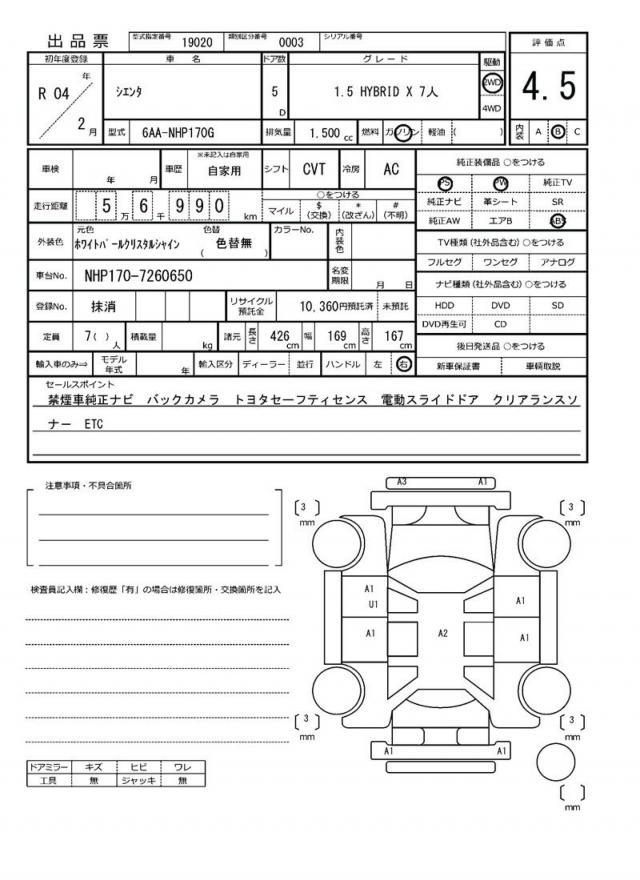 出品票 型式指定番号 19020 類別区分番号 0003 シリアル番号
初年度登録 車名 ドア数 グレード 駆動 評価点
R 04 年 2 月 シエンタ 5 D 1.5 HYBRID X 7人 2WD 4WD 4.5
型式 6AA-NHP170G 排気量 1.500 cc 燃料 ガソリン 軽油 ( ) 内装 A B C
車検 年 月 車歴 ※未記入は自家用 自家用 シフト CVT 冷房 AC 純正装備品 ○をつける
PS PW 純正TV
走行距離 5 万 6 千 9 9 0 km ○をつける
マイル $ (交換) * (改ざん) # (不明)
純正ナビ 革シート SR
純正AW エアB ABS
外装色 元色 ホワイトパールクリスタルシャイン 色替 ( 色替無 ) カラーNo. 内装色
TV種類 (社外品含む) ○をつける
フルセグ ワンセグ アナログ
車台No. NHP170-7260650 名変期限 月 日
ナビ種類 (社外品含む) ○をつける
登録No. 抹消 リサイクル預託金 10,360円預託済 未預託
HDD DVD SD
DVD再生可 CD
定員 7( ) 人 積載量 kg 諸元 長さ 426 cm 幅 169 cm 高さ 167 cm
後日発送品 ○をつける
輸入車のみ⇒ モデル年式 年 輸入区分 ディーラー 並行 ハンドル 左 右
新車保証書 車輌取説
セールスポイント
禁煙車純正ナビ バックカメラ トヨタセーフティセンス 電動スライドドア クリアランスソ
ナー ETC
注意事項・不具合箇所
検査員記入欄：修復歴「有」の場合は修復箇所・交換箇所を記入
A3 A1
[ 3 ] mm [ 3 ] mm
A1 U1 A1
A1 A2 A1
[ 3 ] mm [ 3 ] mm
A1 A1
[ ] mm
ドアミラー キズ ヒビ ワレ
工具 無 ジャッキ 無